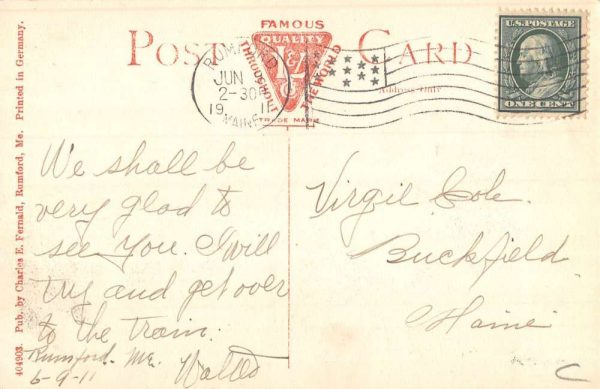 404903. Pub. by Charles E. Fernald, Rumford, Me. Printed in Germany.
POST CARD
FAMOUS
QUALITY
THROUGHOUT
THE WORLD
TRADE MARK
RUMFORD
JUN
2-30P
19 11
MAINE
Address Only
U.S. POSTAGE
ONE CENT
We shall be
very glad to
see you. I will
try and get over
to the train.
Rumsford. Me.
6-9-11
Virgil Cole
Buckfield.
Maine
C